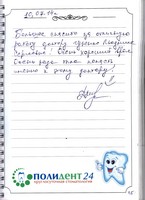 10.07.14г.
Большое спасибо за отличную
работу доктору
Очень хороший врач
Очень рада что попала
именно к этому доктору!
ПОЛИДЕНТ24
круглосуточная стоматология